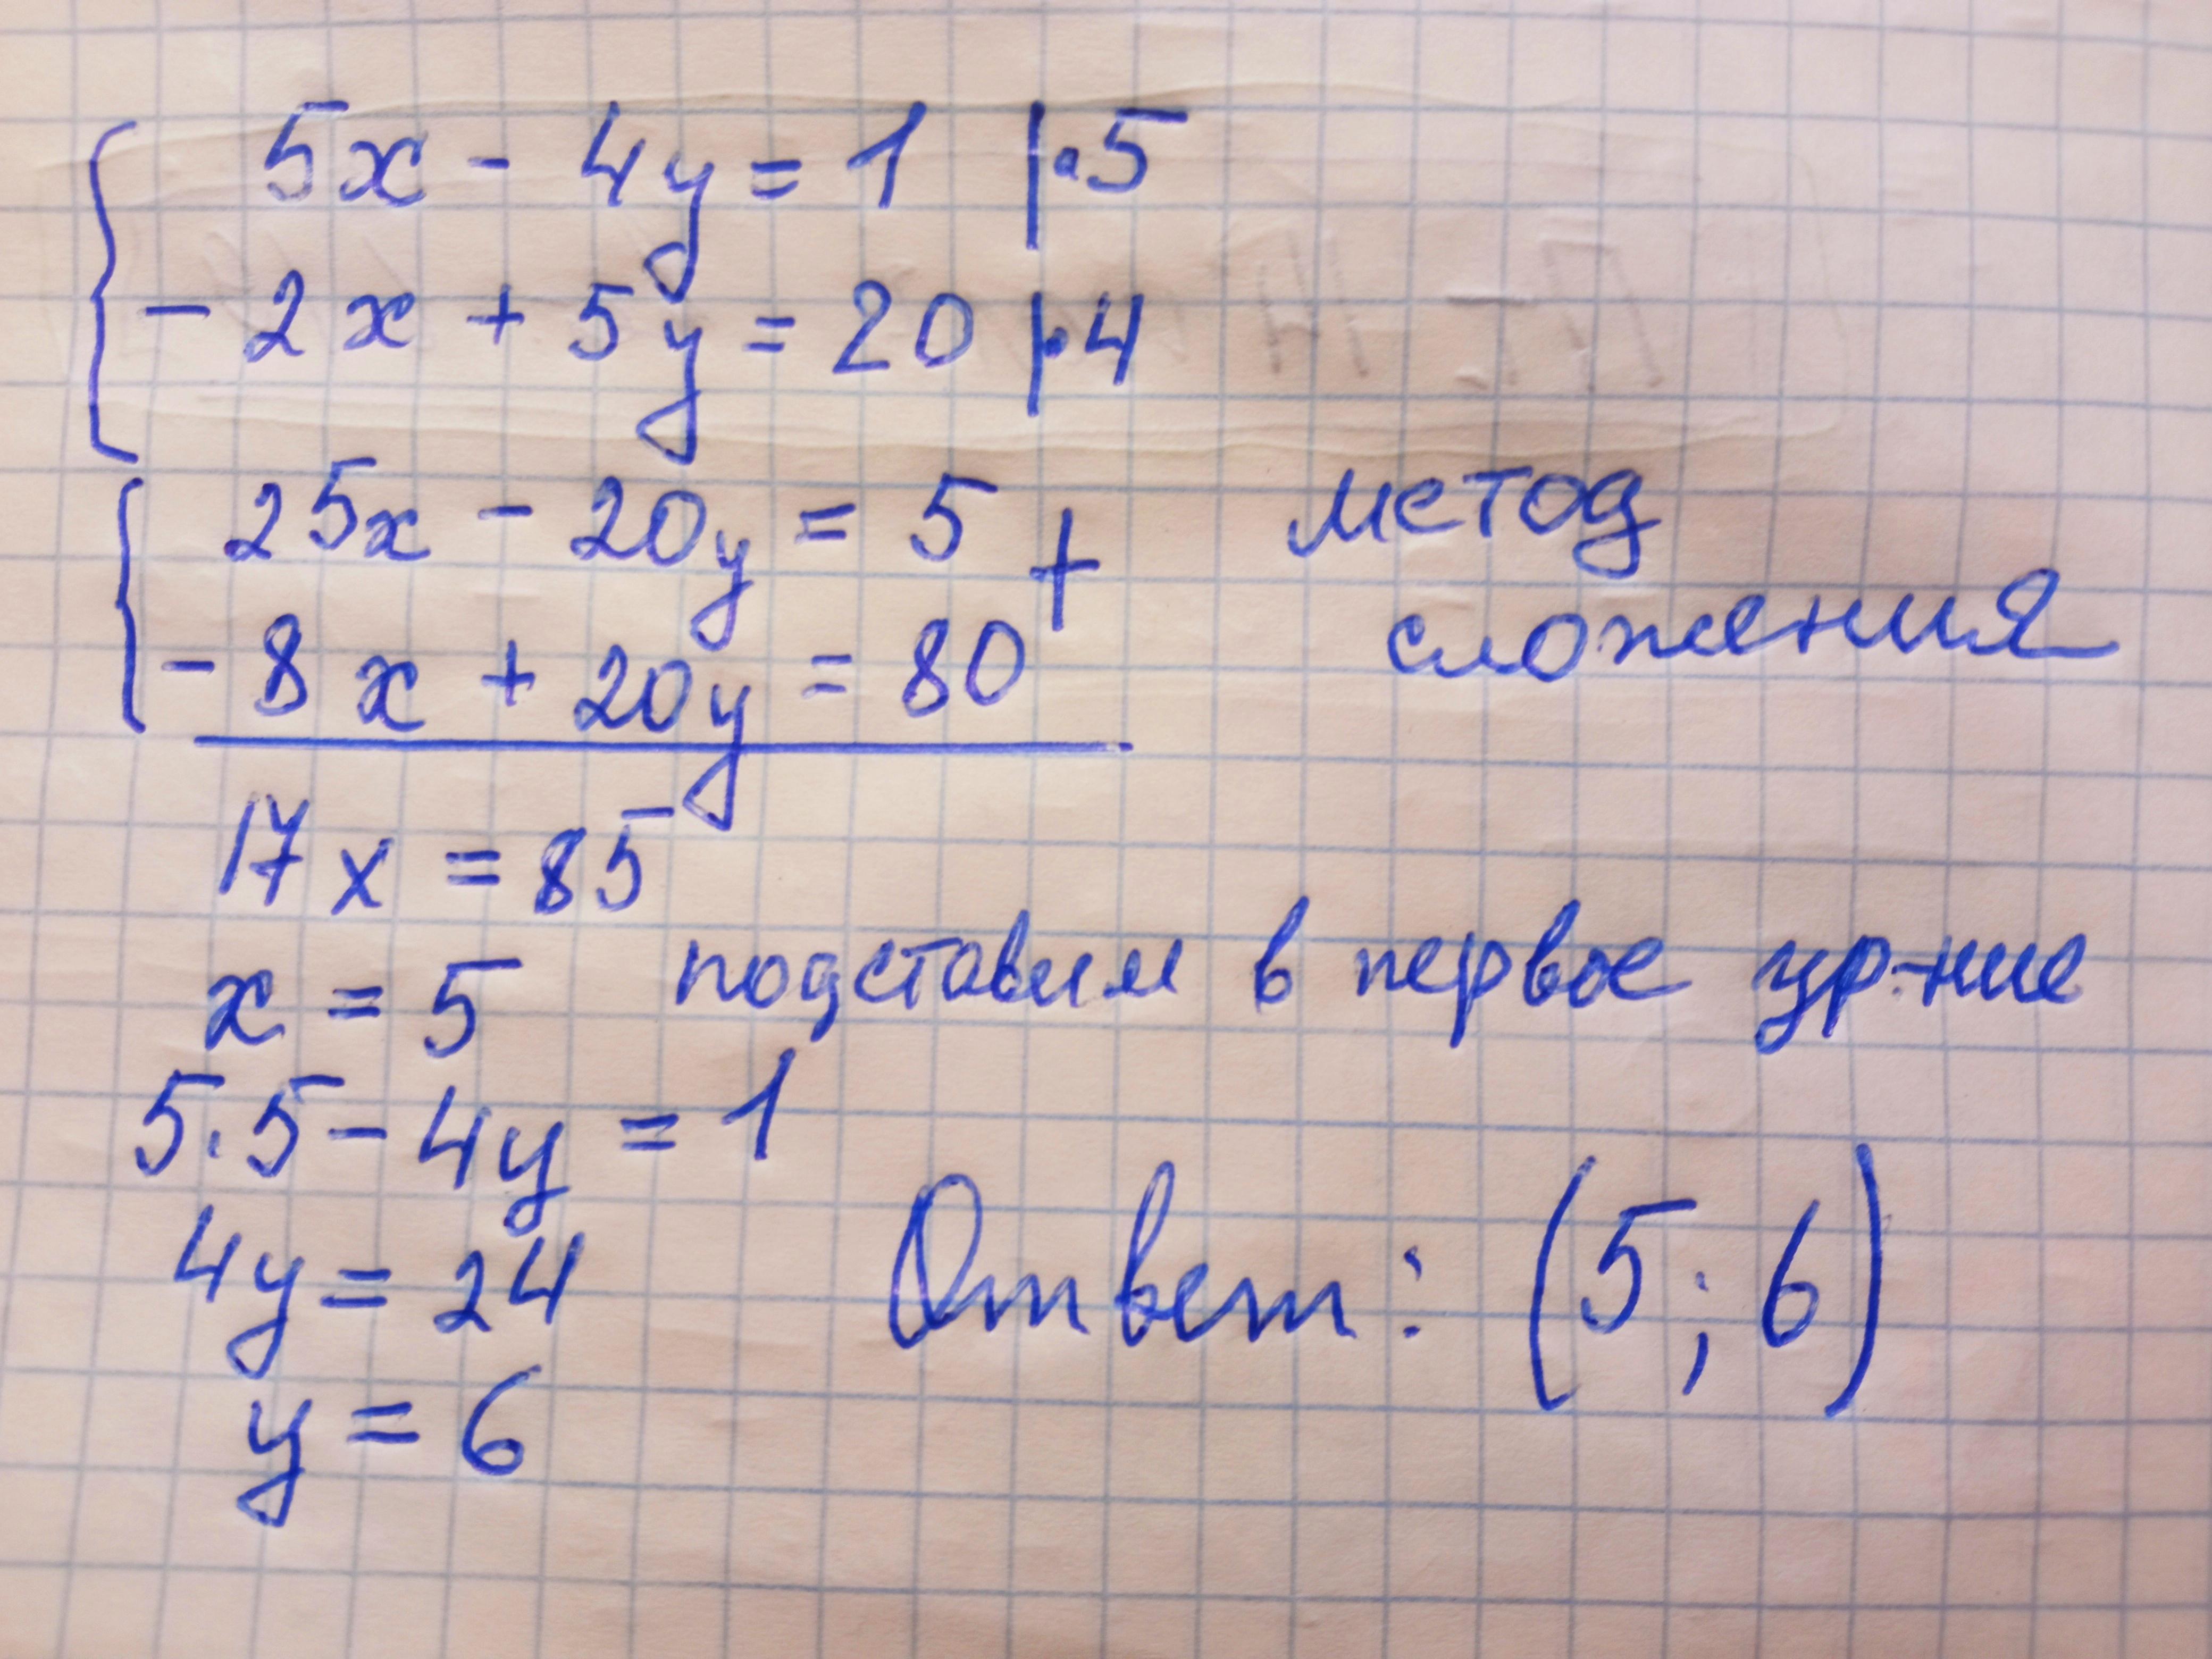 5x - 4y = 1 |·5
- 2x + 5y = 20 |·4
25x - 20y = 5 +
- 8x + 20y = 80
метод
сложения
17x = 85
x = 5 подставим в первое ур-ние
5·5 - 4y = 1
4y = 24
Ответ: (5; 6)
y = 6